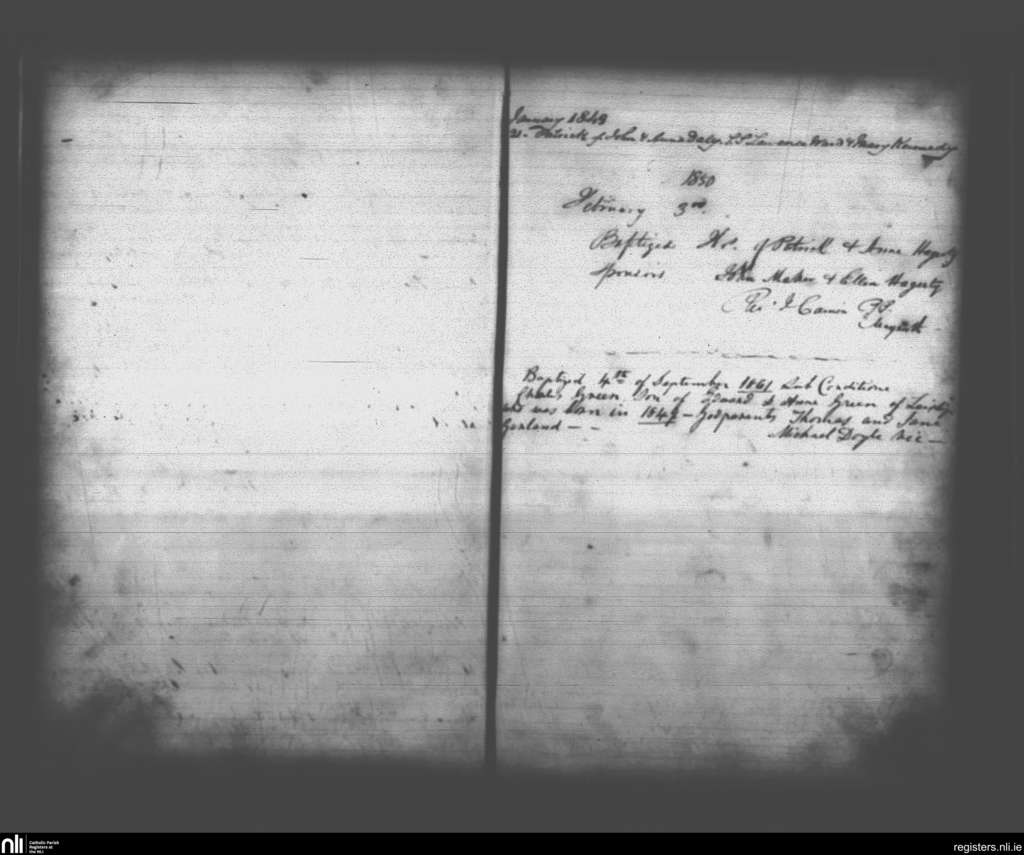 January 1849
21. Patrick of John & Anne Daly. SS Lawrence Ward & Mary Kennedy
1850
February 3rd.
Baptized of Patrick & Anne Hagerty
Sponsors John Maher & Ellen Hagerty
J
Baptized 4th of September 1861 Sub Conditione
Charles Green Son of Edward & Anne Green of
and was born in 1849 – Godparents Thomas and Jane
Garland – –
Michael Doyle
nli
Catholic Parish
Registers at
the NLI
registers.nli.ie